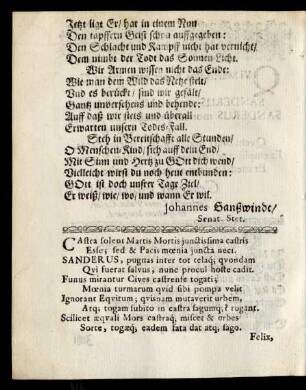 Jetzt ligt Er/ hat in einem Nun
Den tapffern Geist schon auffgegeben:
Den Schlacht und Kampff nicht hat vernicht/
Dem nimbt der Todt das Sonnen-Licht.
Wir Armen wissen nicht das Ende:
Wie man dem Wild das Netz stelt/
Vnd es berückt/ sind wir gefält/
Gantz unversehens und behende:
Auff daß wir stets und überall
Erwarten unsern Todes-Fall.
Steh in Bereitschafft alle Stunden/
O Menschen-Kind/ sieh auff dein End/
Mit Sinn und Hertz zu GOtt dich wend/
Vielleicht wirst du noch heut entbunden:
GOtt ist doch unsrer Tage Ziel/
Er weiß/ wie/ wo/ und wann Er wil.
Johannes Sanßwindt/
Senat. Stet.
CAstra solent Martis Mortis junctissima castris
Esse; sed & Pacis mœnia juncta neci.
SANDERUS, pugnas inter tot relaq; quondam
Qvi fuerat salvus, nunc procul hoste cadit.
Funus mirantur Cives castrense togati;
Mœnia turmarum qvid sibi pompa velit
Ignorant Eqvitum; qvisnam mutaverit urbem,
Atq; togam subito in castra sagumq; rogant.
Scilicet æqvali Mors castraq; miscet & urbes
Sorte, togæq; eadem fata dat atq; sago.
Felix,